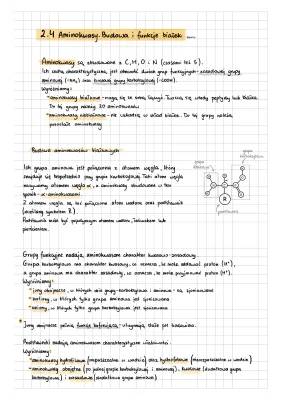 2.4 Aminokwasy. Budowa i funkcje białek
Aminokwasy są zbudowane z C, H, O i N (czasami też S).
Ich cechą charakterystyczną jest obecność dwóch grup funkcyjnych - zasadowej grupy
aminowej (-NH₂) oraz kwasowej grupy karboksylowej (-COOH).
Wyróżniamy:
*aminokwasy białkowe - mogą się ze sobą łączyć. Tworzą się wtedy peptydy lub białka.
Do tej grupy należy 20 aminokwasów
*aminokwasy niebiałkowe - nie wchodzą w skład białek. Do tej grupy należą
pozostałe aminokwasy
Budowa aminokwasów białkowych
Ich grupa aminowa jest połączona z atomem węgla, który
znajduje się bezpośrednio przy grupie karboksylowej. Taki atom węgla
nazywamy atomem węgla α, a aminokwasy zbudowane w ten
sposób - α-aminokwasami
Z atomem węgla są też połączone atom wodoru oraz podstawnik
(oznaczamy symbolem R).
Podstawnik może być pojedynczym atomem wodoru, łańcuchem lub
pierścieniem.
grupa
aminowa
grupa
karboksylowa
R
podstawnik
Grupy funkcyjne nadają aminokwasom charakter kwasowo-zasadowy.
Grupa karboksylowa ma charakter kwasowy, co oznacza, że może oddawać proton (H⁺),
a grupa aminowa ma charakter zasadowy, co oznacza, że może przyjmować proton (H⁺).
Wyróżniamy:
*jony obojnacze, w których obie grupy - karboksylowa i aminowa - są zjonizowane
*kationy, w których tylko grupa aminowa jest zjonizowana
*aniony, w których tylko grupa karboksylowa jest zjonizowana
Jony obojnacze pełnią funkcję buforującą - utrzymują stałe pH roztworów.
Podstawniki nadają aminokwasom charakterystyczne właściwości.
Wyróżniamy:
*aminokwasy hydrofilowe (rozpuszczalne w wodzie) oraz hydrofobowe (nierozpuszczalne w wodzie)
*aminokwasy obojętne (po jednej grupie karboksylowej i aminowej), kwasowe (dodatkowa grupa
karboksylowa) i zasadowe (dodatkowa grupa aminowa)